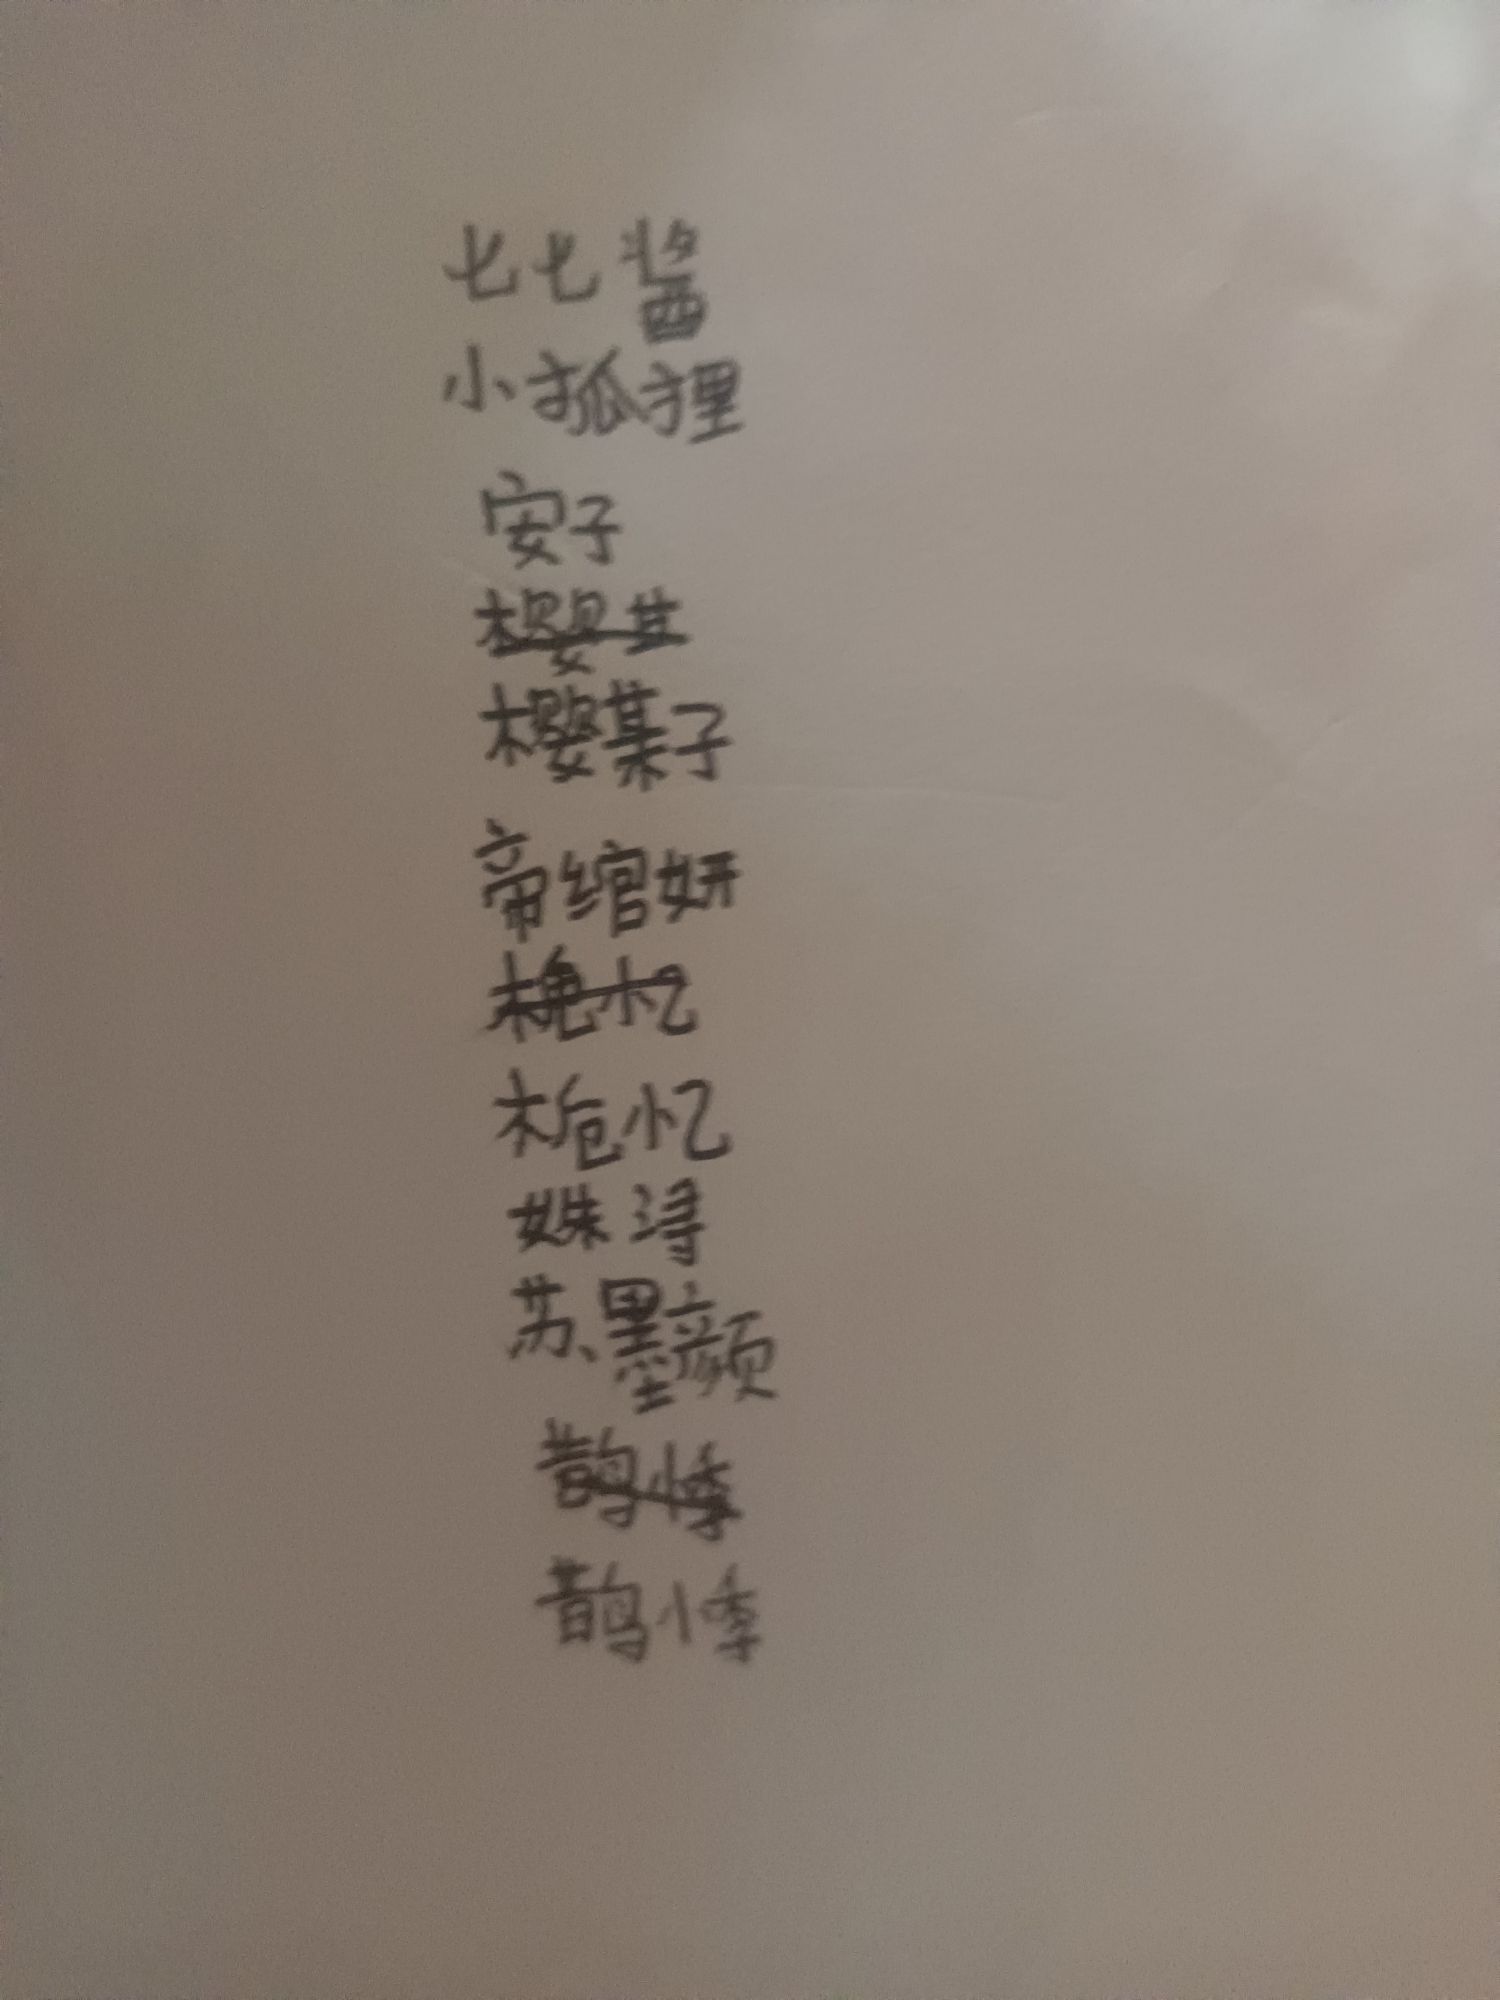 七七酱
小狐狸
安子
樱甘
樱某子
帝绾妍
槐忆
栀忆
姝浔
苏墨颜
鹊悸
鹊悸